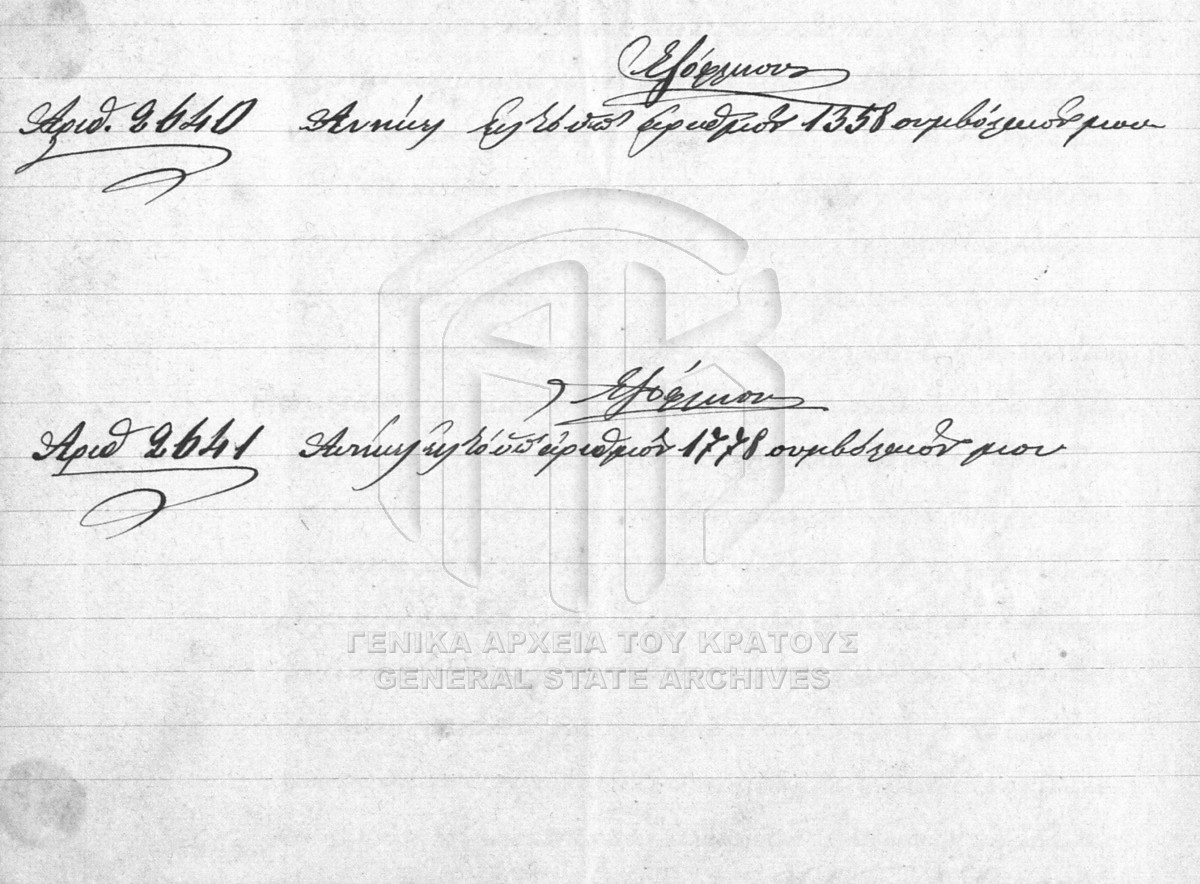 Εξόφλησις
Αριθ. 2640 Ανήκει εις το υπ' αριθμόν 1358 συμβόλαιόν μου
Εξόφλησις
Αριθ 2641 Ανήκει εις το υπ' αριθμόν 1778 συμβόλαιόν μου
ΓΕΝΙΚΑ ΑΡΧΕΙΑ ΤΟΥ ΚΡΑΤΟΥΣ
GENERAL STATE ARCHIVES